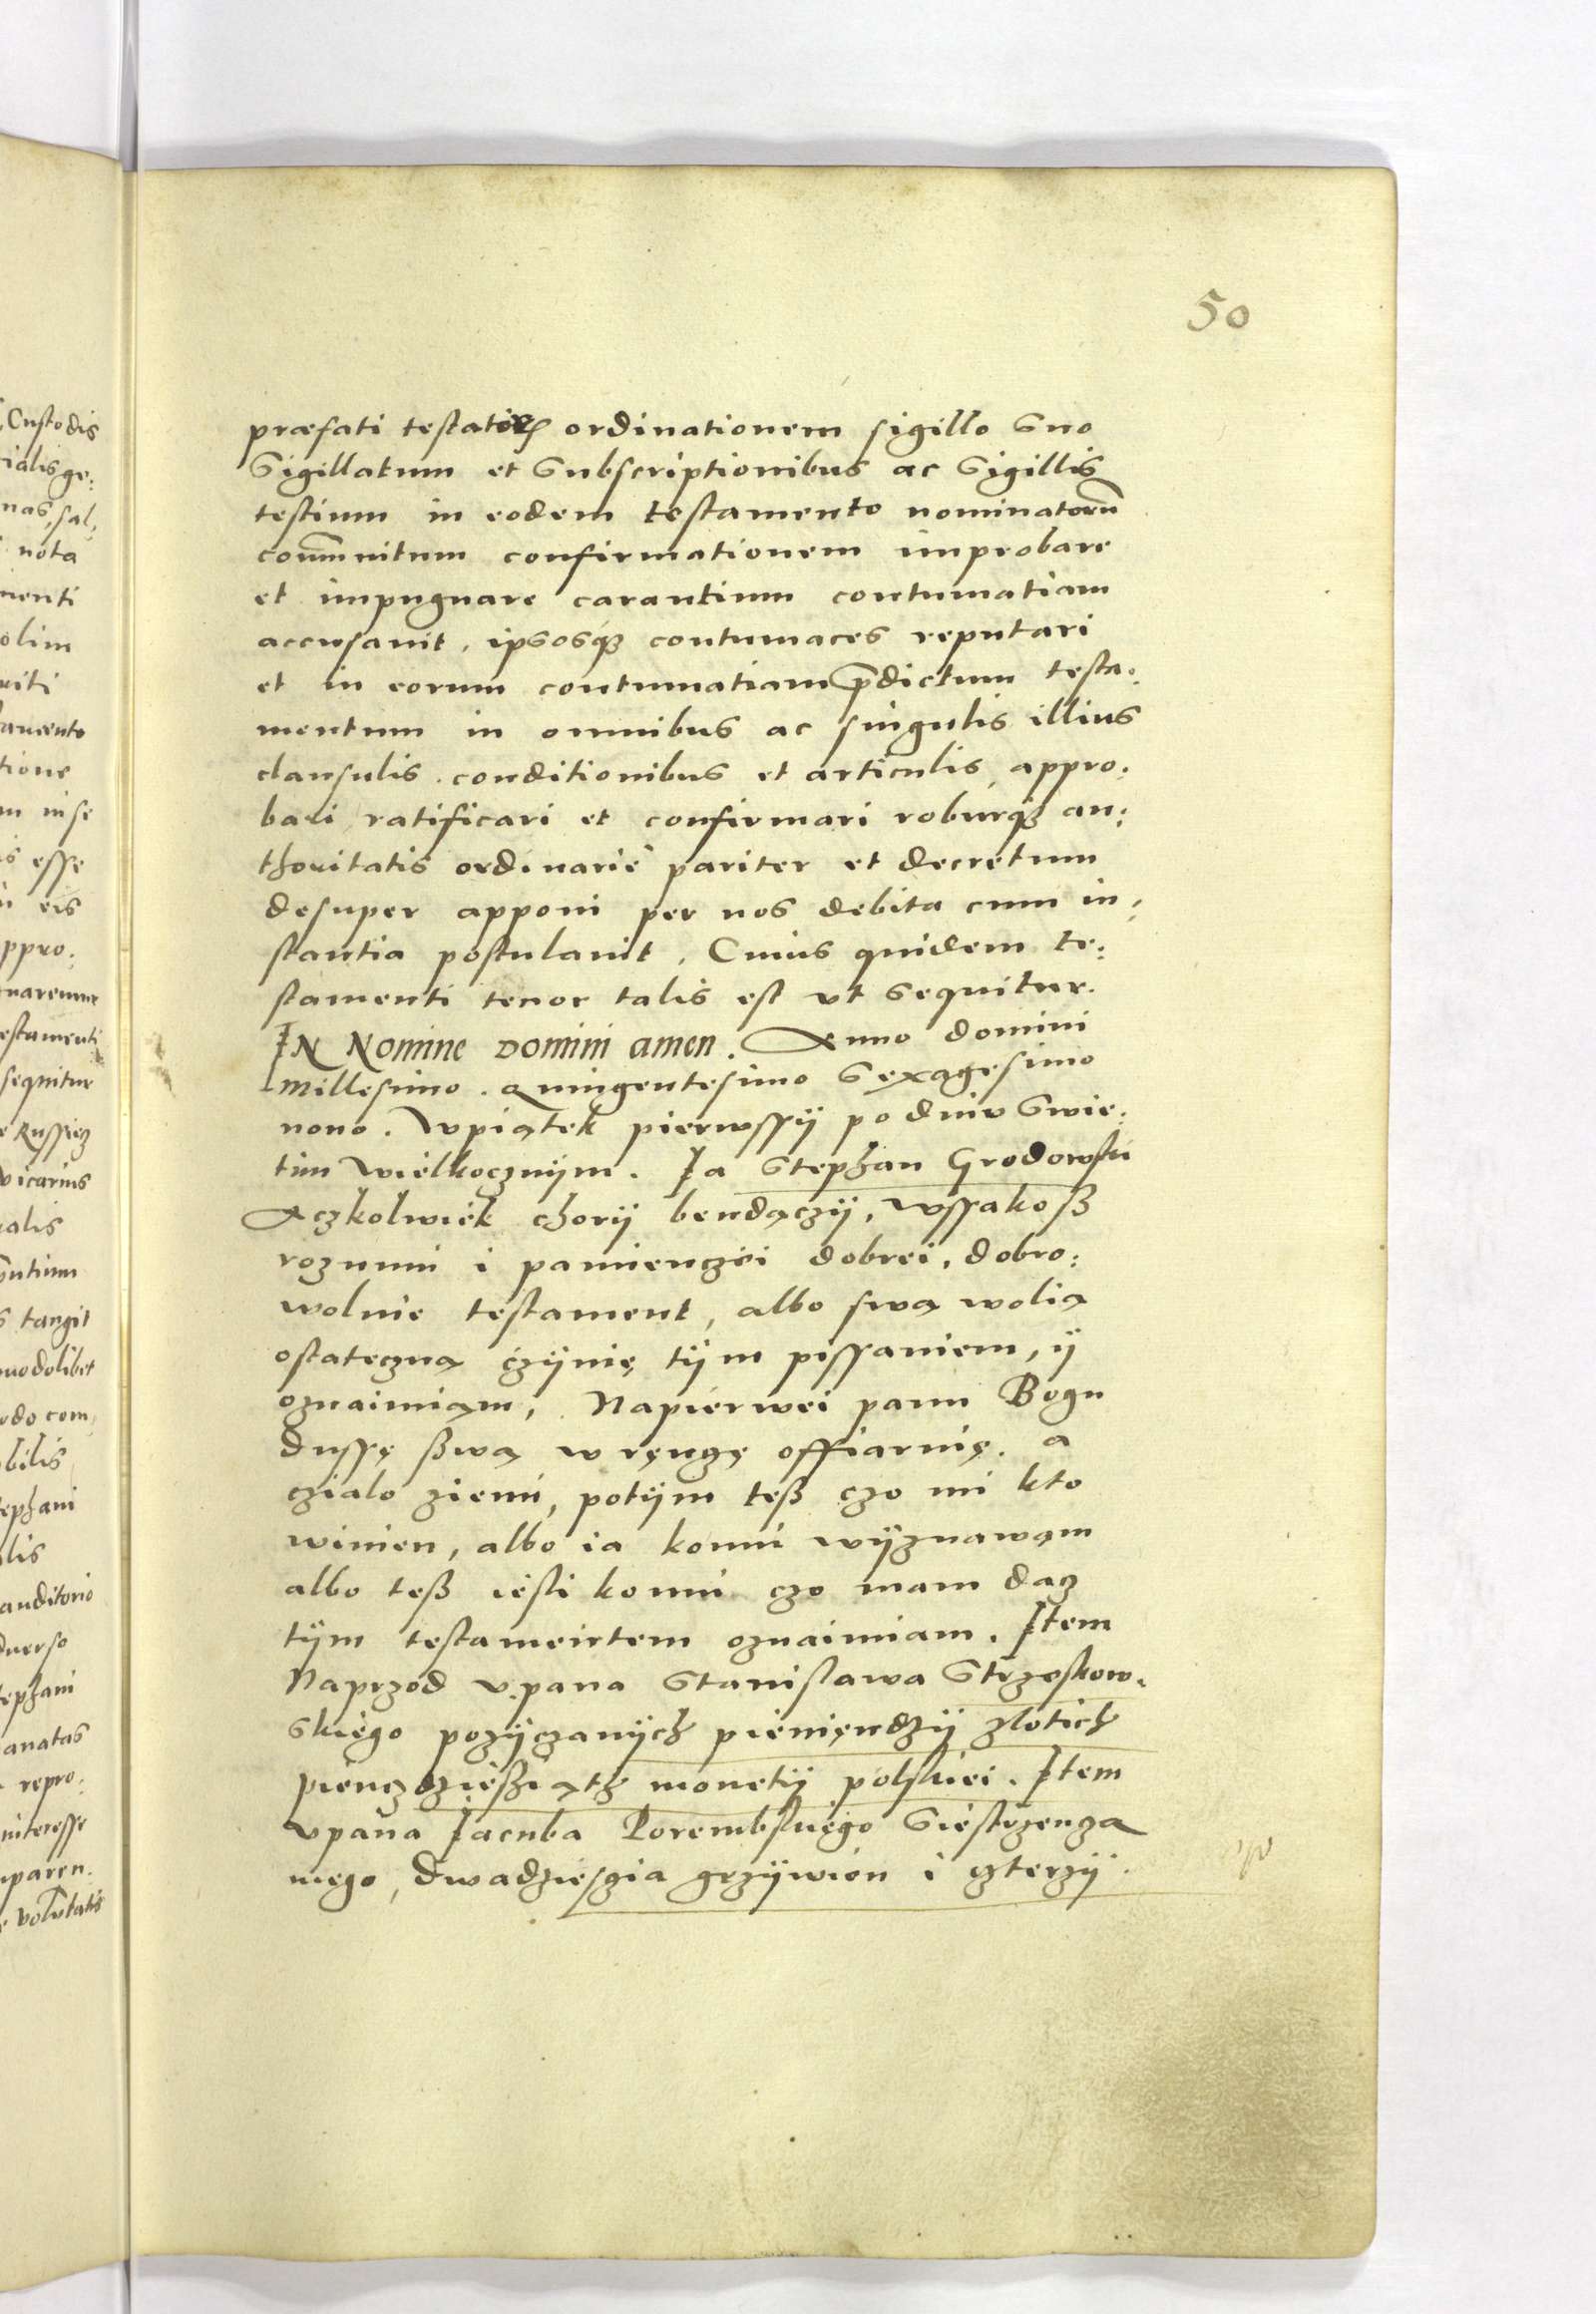 50
præfati testatoris ordinationem sigillo suo
Sigillatum et subscriptionibus ac sigillis
testium in eodem testamento nominatorũ
com̃unitum confirmationem improbare
et impugnare curantium contumatiam
accusauit, ipsosq́ʒ contumaces reputari
et in eorum contumatiam p̃dictum testa:
mentum in omnibus ac singulis illius
clausulis conditionibus et articulis appro:
bari ratificari et confirmari roburq́ʒ au:
thoritatis ordinarie pariter et decretum
desuper apponi per nos debita cum in:
stantia postulauit. Cuius quidem te:
stamenti tenor talis est vt sequitur.
IN Nomine Domini amen. Anno domini
millesimo. Quingentesimo Sexagesimo
nono. Wpiątek pierwssÿ po dniu Swie:
tim Wielkocznÿm. Ja Stephan Grodowski
Aczkolwiek chorÿ bendączÿ, wssakoß
rozumu i pamienczei dobrei, dobro:
wolnie testament, albo swą wolią
ostateczną czÿnię tÿm pissaniem, ÿ
oznaimiąm, Napierwei panu Bogu
dussę ßwą w ręnçę offiaruię. a
czialo ziemi, potÿm teß czo mi kto
winien, albo ia komu wÿznawąm
albo teß iesti komu czo mam dacz
tÿm testamentem oznaimiam. Item
Naprzod v pana Stanislawa Strzeskow:
skiego pozÿczanÿch pieniędzÿ zlotich
pienczdzießiąth monetÿ polskiei. Item
v pana Jacuba Porembskiego Siestrzenza
mego, dwadziesczia grzÿwien i czterzÿ.
Custodis
ialis ge:
nas, sal:
nota
menti
olim
riti
tamento
tione
m in se
is esse
n eis
ppro:
estamenti
sequitur
vicarius
ialis
tangit
uodolibet
odo com:
bilis
tephani
lis
auditorio
duerso
tephani
anatas
repro:
interesse
iparen: